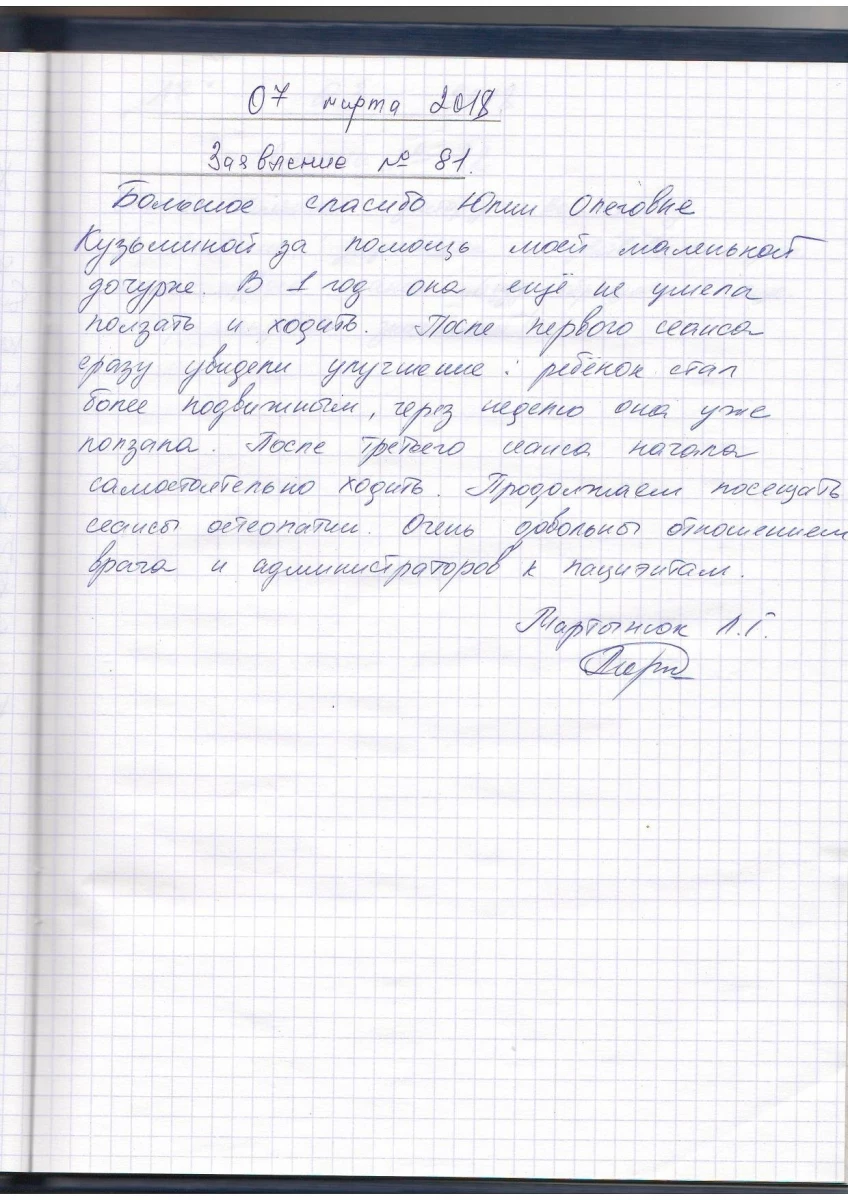 07 марта 2018
Заявление № 81.
Большое спасибо Юлии Олеговне
Кузьминой за помощь моей маленькой
дочурке. В 1 год она ещё не умела
ползать и ходить. После первого сеанса
сразу увидели улучшение: ребёнок стал
более подвижным, через неделю она уже
ползала. После третьего сеанса начала
самостоятельно ходить. Продолжаем посещать
сеансы остеопатии. Очень довольны отношением
врача и администраторов к пациэнтам.
Мартынюк Л.Г.